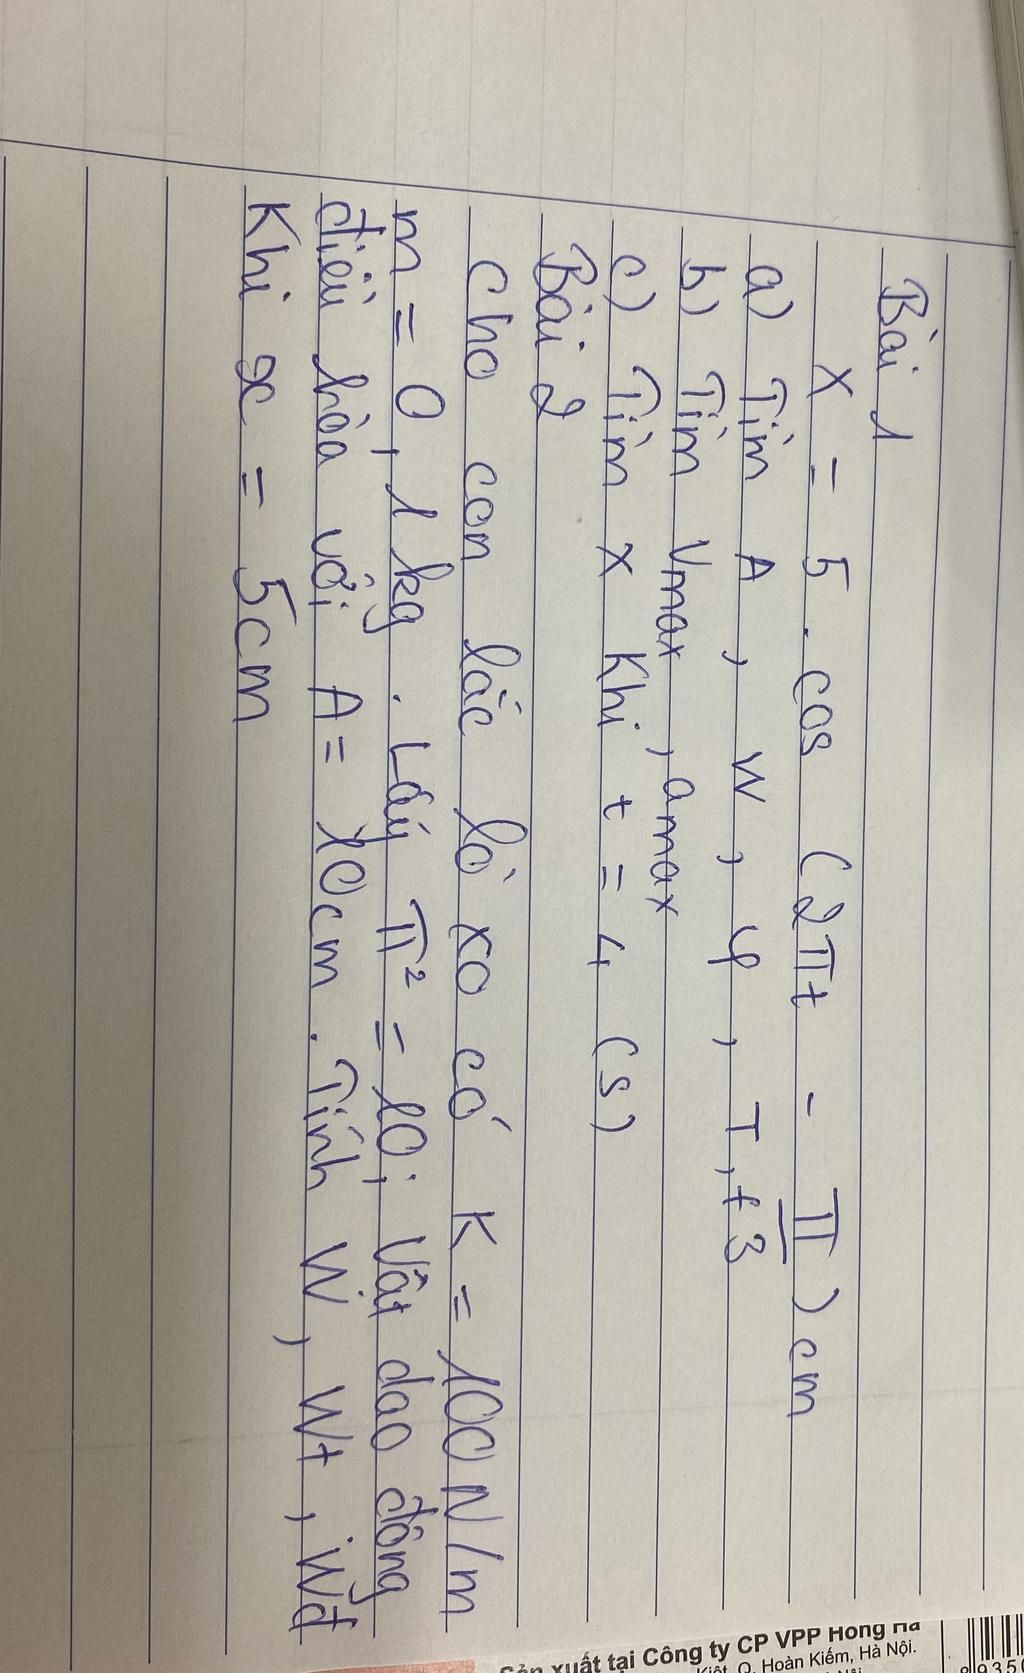 Bài 1
x = 5 . cos (2πt - π/3) cm
a) Tìm A, W, φ, T, f
b) Tìm Vmax, amax
c) Tìm x khi t = 4 (s)
Bài 2
Cho con lắc lò xo có K = 100N/m
m = 0,1 kg . Lấy π² = 10; Vật dao động
điều hòa với A = 10cm . Tính W, Wt, Wđ
Khi x = 5cm
Sản xuất tại Công ty CP VPP Hồng Hà
Kiệt, Q. Hoàn Kiếm, Hà Nội.